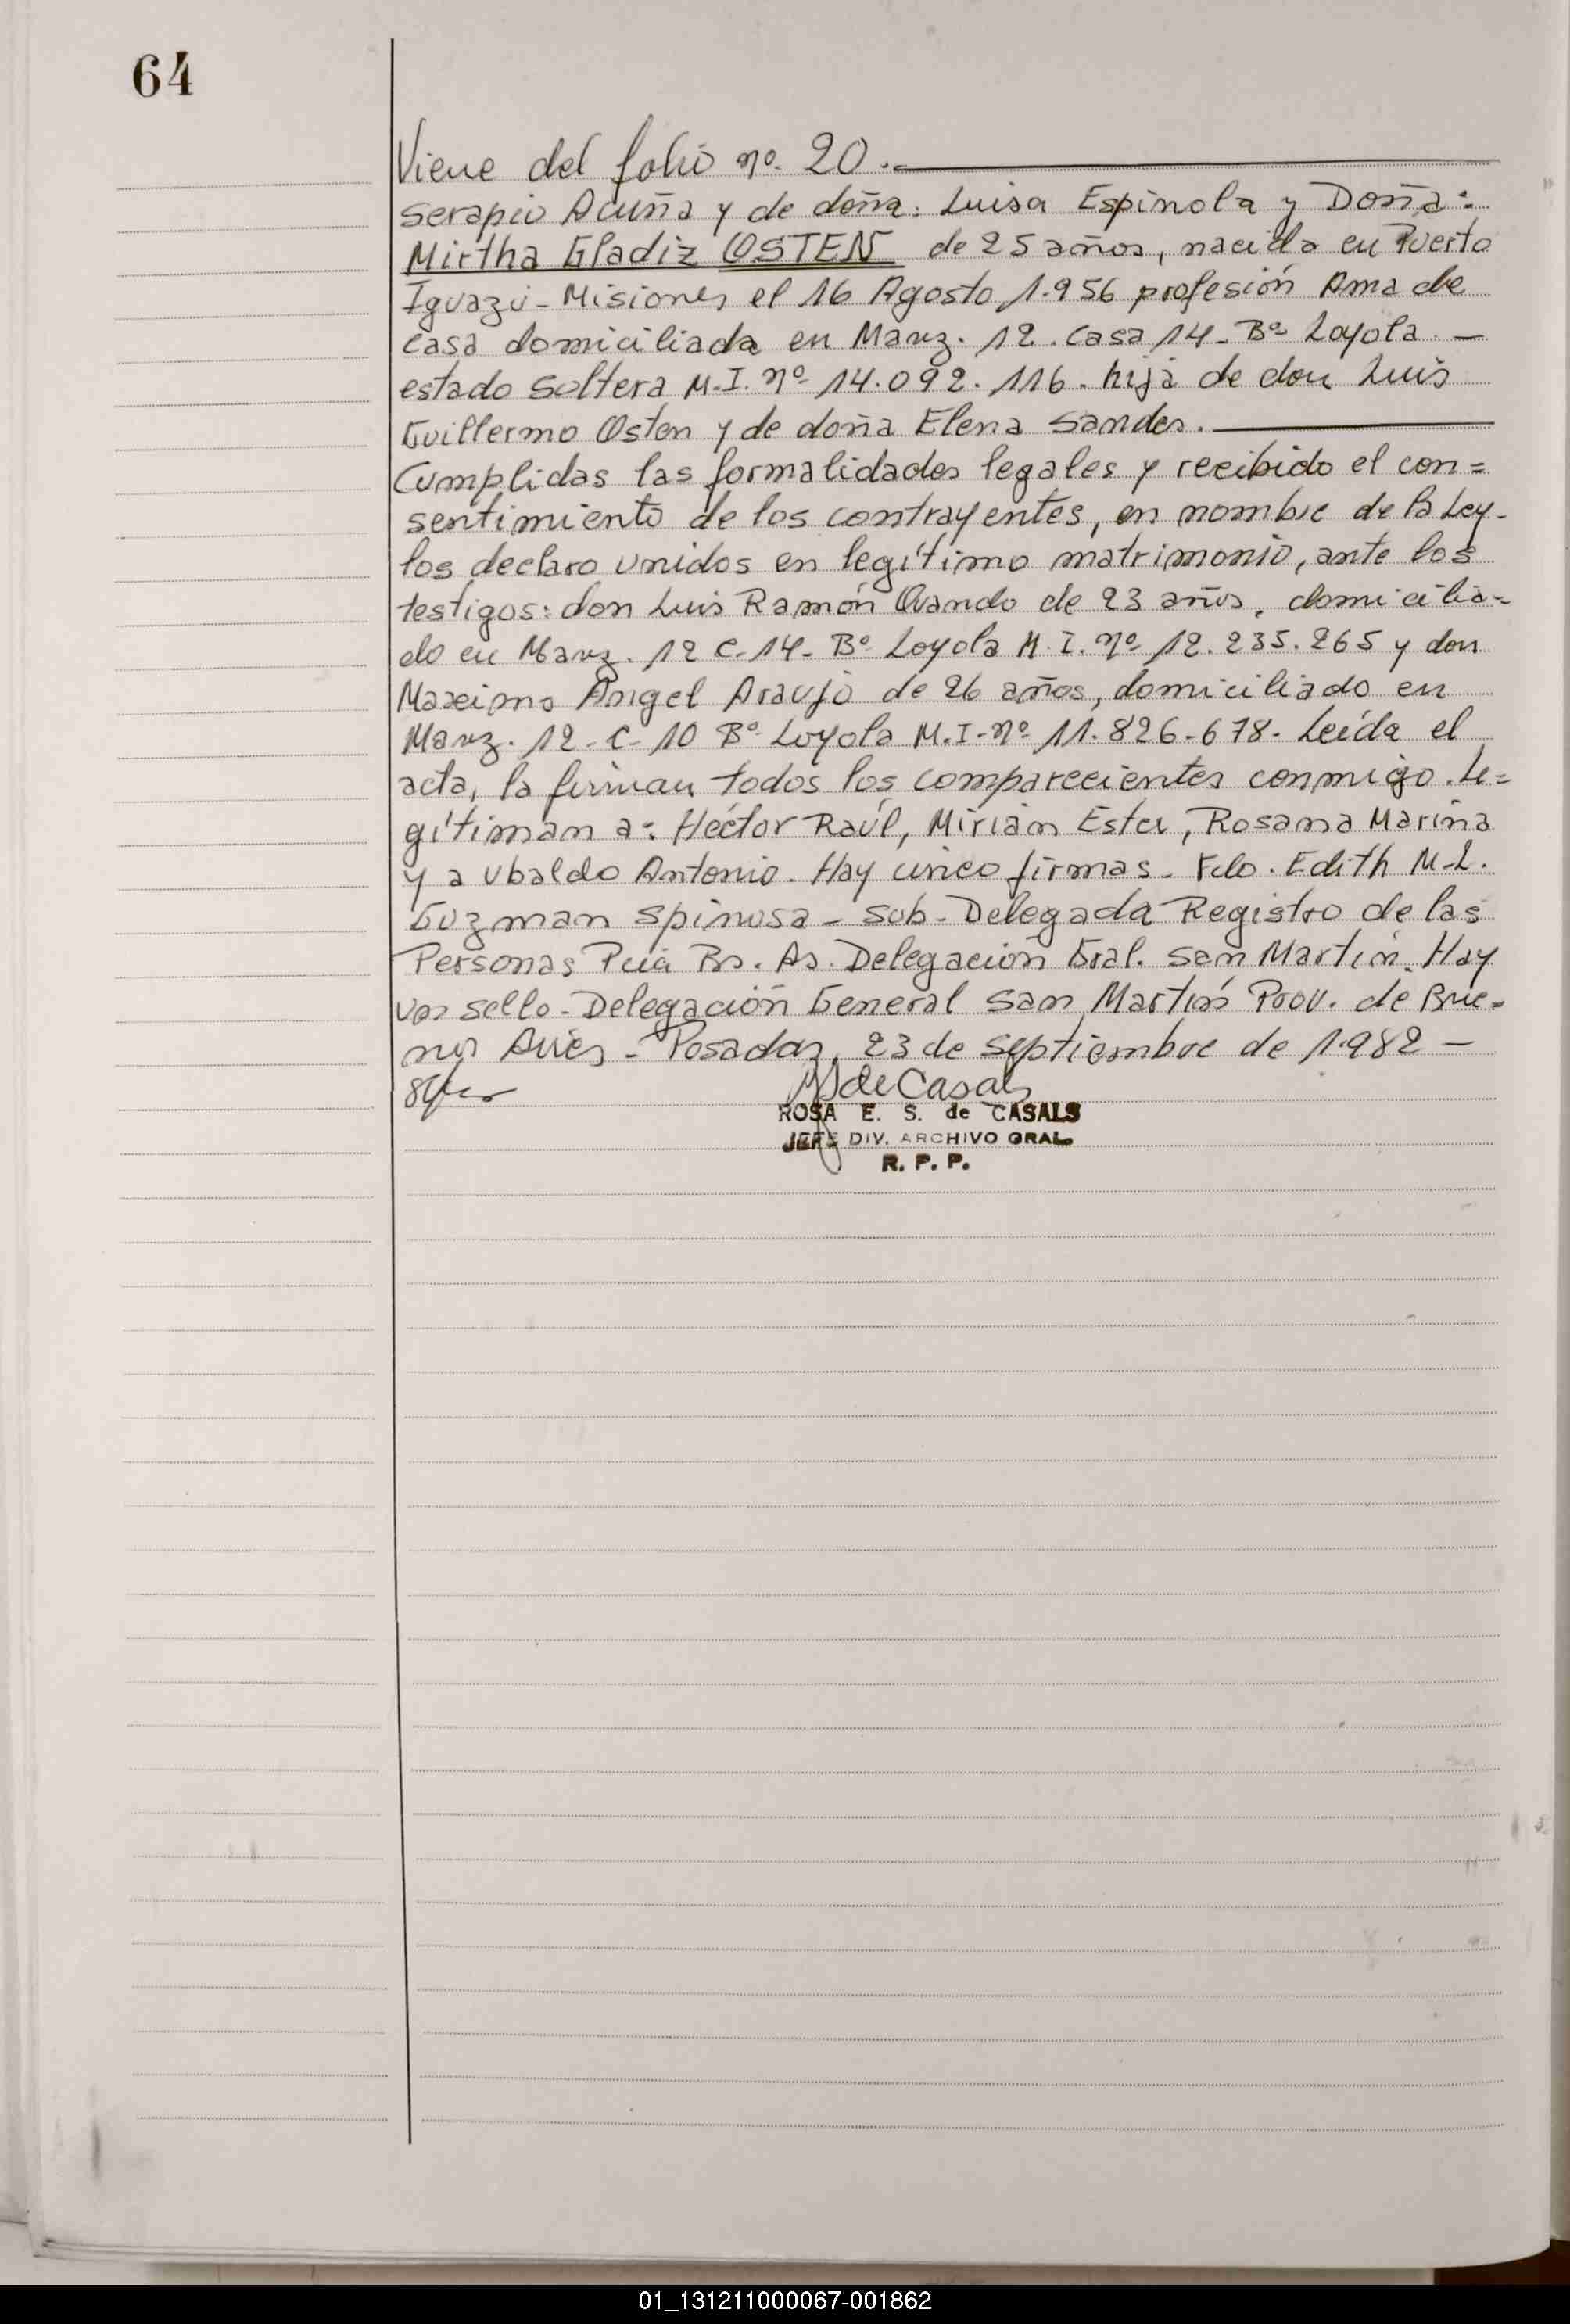 64
Viene del folio nº. 20.-
Serapio Acuña y de doña: Luisa Espinola y Doña:
Mirtha Gladiz OSTEN de 25 años, nacida en Puerto
Iguazú - Misiones el 16 Agosto 1.956 profesión Ama de
casa domiciliada en Manz. 12. casa 14- Bº Loyola. -
estado soltera M.I. nº 14.092.116. hija de don Luis
Guillermo Osten y de doña Elena Sander.
Cumplidas las formalidades legales y recibido el con=
sentimiento de los contrayentes, en nombre de la Ley-
los declaro unidos en legítimo matrimonio, ante los
testigos: don Luis Ramón Ovando de 23 años, domicilia=
do en Manz. 12 C-14- Bº Loyola M.I. nº 12.235.265 y don
Maximo Angel Araujo de 26 años, domiciliado en
Manz. 12-C-10 Bº Loyola M.I-nº 11.826-678- Leída el
acta, la firman todos los comparecientes conmigo. Le=
gítiman a: Héctor Raúl, Mirian Ester, Rosana Marina
y a Ubaldo Antonio. Hay cinco firmas- Fdo. Edith M-L.
Guzman Spinosa - Sub-Delegada Registro de las
Personas Pcia Bs. As. Delegacion Gral. San Martín. Hay
un sello- Delegación General San Martín Prov. de Bue=
nos Aires - Posadas, 23 de septiembre de 1.982 -
de Casals
ROSA E. S. de CASALS
JEFE DIV. ARCHIVO GRAL.
R. P. P.
01_131211000067-001862